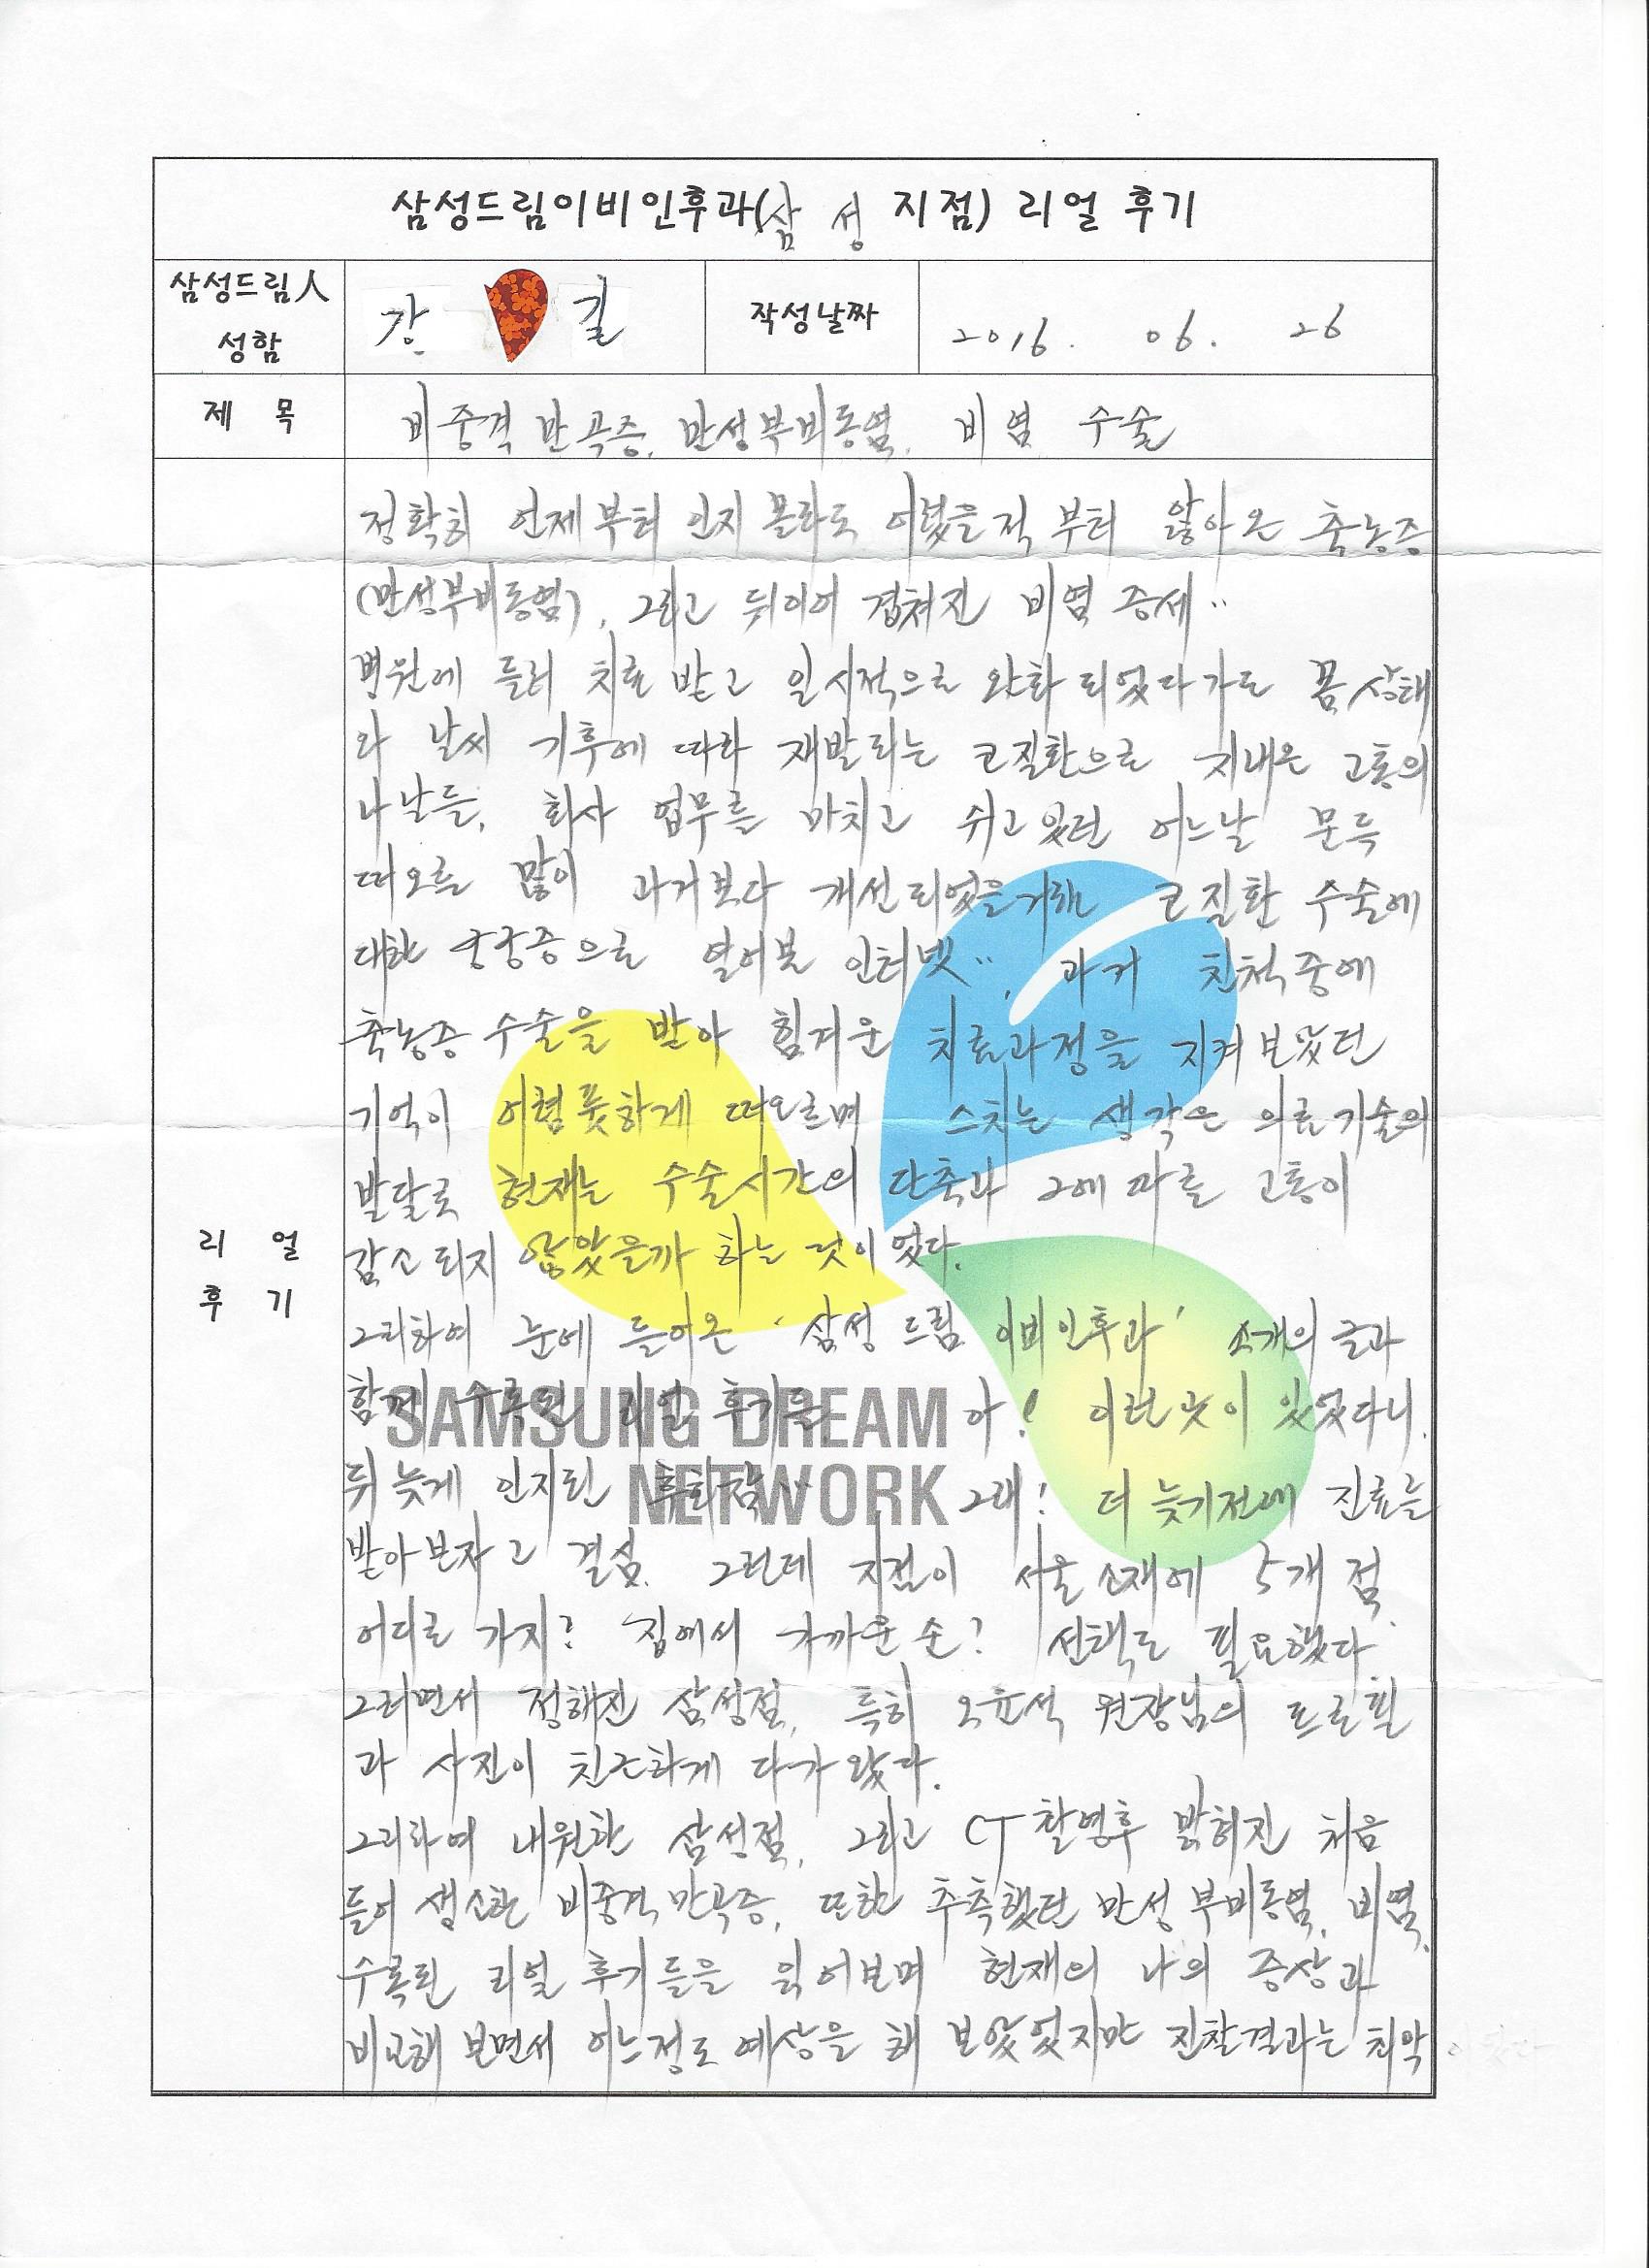 삼성드림이비인후과(삼 성 지점) 리얼 후기
삼성드림人
성함
강 길
작성날짜
2016. 06. 26
제 목
비중격 만곡증, 만성부비동염, 비염 수술
정확히 언제부터 인지 몰라도 어렸을적 부터 앓아온 축농증
(만성부비동염), 그리고 뒤이어 겹쳐진 비염 증세..
병원에 들러 치료 받고 일시적으로 완화 되었다가도 몸 상태
와 날씨 기후에 따라 재발되는 코질환으로 지내온 고통의
나날들, 회사 업무를 마치고 쉬고 있던 어느날 문득
떠오른 많이 과거보다 개선되었을거란 코질환 수술에
대한 궁궁증으로 열어본 인터넷.., 과거 친척중에
축농증 수술을 받아 힘겨운 치료과정을 지켜 보았던
기억이 어렴풋하게 떠오르며 스치는 생각은 의료기술의
발달로 현재는 수술시간의 단축과 그에 따른 고통이
감소되지 않았을까 하는 것이었다.
그리하여 눈에 들어온 '삼성 드림 이비인후과' 소개의 글과
함께 수록된 리얼 후기들 아! 이런곳이 있었다니.
뒤늦게 인지된 후회감.. 그래! 더 늦기전에 진료를
받아보자고 결심. 그런데 지점이 서울 소재에 5개 점.
어디로 가지? 집에서 가까운 순? 선택도 필요했다.
그러면서 정해진 삼성점, 특히 오윤석 원장님의 프로필
과 사진이 친근하게 다가 왔다.
그리하여 내원한 삼성점, 그리고 CT촬영후 밝혀진 처음
들어 생소한 비중격 만곡증, 또한 추측했던 만성 부비동염, 비염,
수록된 리얼 후기들을 읽어보며 현재의 나의 증상과
비교해 보면서 어느정도 예상을 해 보았었지만 진찰결과는 최악이었다
리 얼
후 기
SAMSUNG DREAM
NETWORK